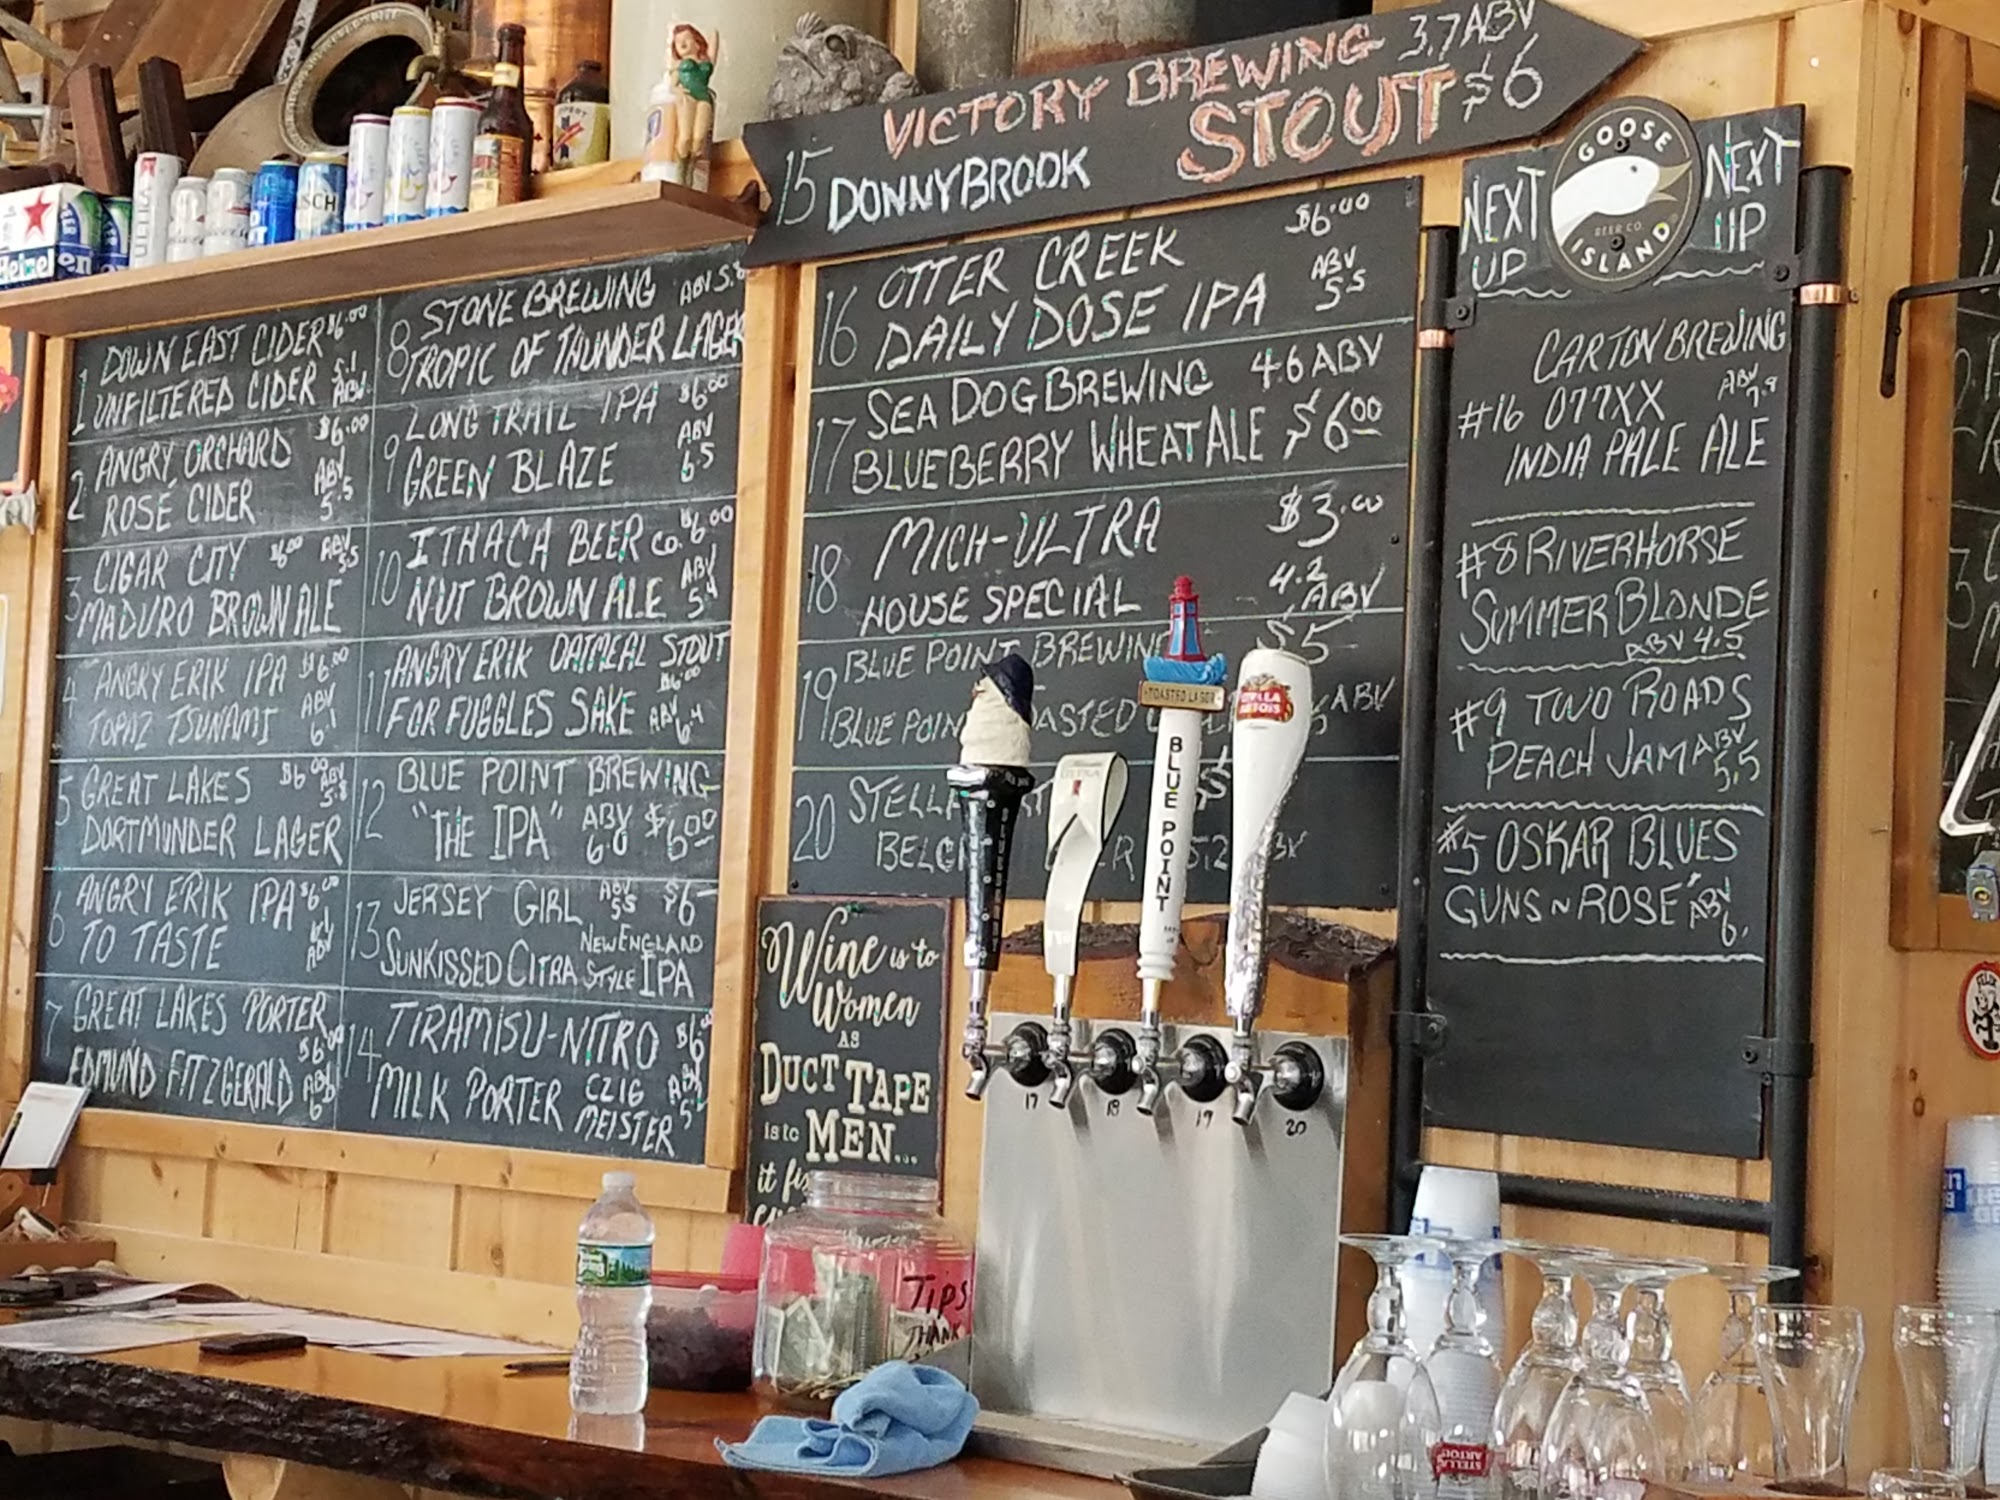 15 VICTORY BREWING 3.7 ABV
DONNYBROOK STOUT $6
1 DOWN EAST CIDER $6.00
UNFILTERED CIDER 5.1 ABV
2 ANGRY ORCHARD $6.00
ROSÉ CIDER ABV 5.5
3 CIGAR CITY $6.00 ABV 5.5
MADURO BROWN ALE
4 ANGRY ERIK IPA $6.00
TOPAZ TSUNAMI ABV 6.1
5 GREAT LAKES $6.00 ABV 5.8
DORTMUNDER LAGER
6 ANGRY ERIK IPA $6.00
TO TASTE ABV
7 GREAT LAKES PORTER
EDMUND FITZGERALD $6.00 ABV 6
8 STONE BREWING ABV 5.8
TROPIC OF THUNDER LAGER
9 LONG TRAIL IPA $6.00
GREEN BLAZE ABV 6.5
10 ITHACA BEER CO. $6.00
NUT BROWN ALE ABV 5.4
11 ANGRY ERIK OATMEAL STOUT
FOR FUGGLES SAKE $6.00 ABV 6.4
12 BLUE POINT BREWING
"THE IPA" ABV 6.0 $6.00
13 JERSEY GIRL ABV 5.5 $6-
SUNKISSED CITRA NEW ENGLAND STYLE IPA
14 TIRAMISU-NITRO $6
MILK PORTER CZIG MEISTER ABV 5
16 OTTER CREEK $6.00
DAILY DOSE IPA ABV 5.5
17 SEA DOG BREWING 4.6 ABV
BLUEBERRY WHEAT ALE $6.00
18 MICH-ULTRA $3.00
HOUSE SPECIAL 4.2 ABV
19 BLUE POINT BREWING $5
BLUE POINT TOASTED ABV
20 STELLA
5.2
NEXT UP
GOOSE ISLAND
BEER CO.
NEXT UP
CARTON BREWING
#16 077XX ABV 7.9
INDIA PALE ALE
#8 RIVERHORSE
SUMMER BLONDE
ABV 4.5
#9 TWO ROADS
PEACH JAM ABV 5.5
#5 OSKAR BLUES
GUNS ~ ROSÉ ABV 6.
Wine is to
Women
AS
DUCT TAPE
is to MEN...
it
TOASTED LAGER
BLUE POINT
STELLA ARTOIS
17 18 19 20
TIPS
THANK
Heineken
ULTRA
STELLA ARTOIS
FELIX